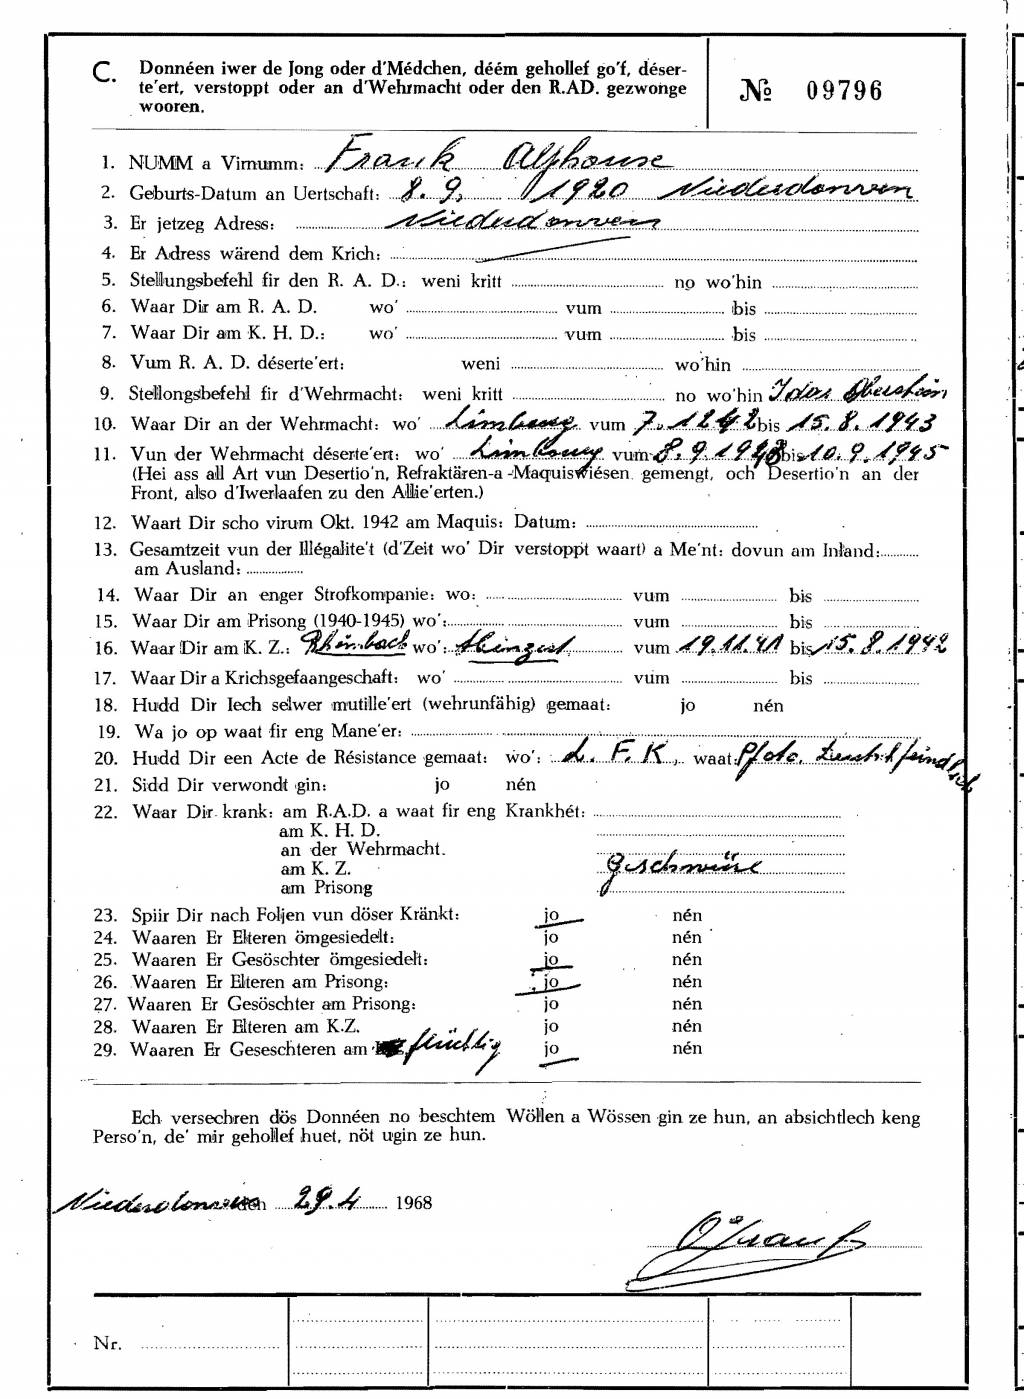 C. Donnéen iwer de Jong oder d'Médchen, déém gehollef go'f, déser-
te'ert, verstoppt oder an d'Wehrmacht oder den R.AD. gezwonge
wooren.
№ 09796
1. NUMM a Virnumm: Frank Alphonse
2. Geburts-Datum an Uertschaft: 8.9. 1920 Niederdonven
3. Er jetzeg Adress: Niederdonven
4. Er Adress wärend dem Krich:
5. Stellungsbefehl fir den R. A. D.: weni kritt no wo'hin
6. Waar Dir am R. A. D. wo' vum bis
7. Waar Dir am K. H. D.: wo' vum bis
8. Vum R. A. D. déserte'ert: weni wo'hin
9. Stellongsbefehl fir d'Wehrmacht: weni kritt no wo'hin Idar Oberstein
10. Waar Dir an der Wehrmacht: wo' Limburg vum 7. 1242 bis 15. 8. 1943
11. Vun der Wehrmacht déserte'ert: wo' Limburg vum 8. 9. 1943 bis 10. 9. 1945
(Hei ass all Art vun Desertio'n, Refraktären-a-Maquiswiésen gemengt, och Desertio'n an der
Front, also d'Iwerlaafen zu den Allie'erten.)
12. Waart Dir scho virum Okt. 1942 am Maquis: Datum:
13. Gesamtzeit vun der Illégalite't (d'Zeit wo' Dir verstoppt waart) a Me'nt: dovun am Inland:
am Ausland:
14. Waar Dir an enger Strofkompanie: wo: vum bis
15. Waar Dir am Prisong (1940-1945) wo': vum bis
16. Waar Dir am K. Z.: Rheinbach wo': Hinzert vum 19.11.41 bis 15. 8. 1942
17. Waar Dir a Krichsgefaangeschaft: wo' vum bis
18. Hudd Dir Iech selwer mutille'ert (wehrunfähig) gemaat: jo nén
19. Wa jo op waat fir eng Mane'er:
20. Hudd Dir een Acte de Résistance gemaat: wo': L. F. K., waat:
21. Sidd Dir verwondt gin: jo nén
22. Waar Dir krank: am R.A.D. a waat fir eng Krankhét:
am K. H. D.
an der Wehrmacht.
am K. Z. Geschwüre
am Prisong
23. Spiir Dir nach Foljen vun döser Kränkt: jo nén
24. Waaren Er Elteren ömgesiedelt: jo nén
25. Waaren Er Gesöschter ömgesiedelt: jo nén
26. Waaren Er Elteren am Prisong: jo nén
27. Waaren Er Gesöschter am Prisong: jo nén
28. Waaren Er Elteren am K.Z. jo nén
29. Waaren Er Geseschteren am flüchtig jo nén
Ech versechren dös Donnéen no beschtem Wöllen a Wössen gin ze hun, an absichtlech keng
Perso'n, de' mir gehollef huet, nöt ugin ze hun.
Niederdonven den 29.4 1968
Frank
Nr.